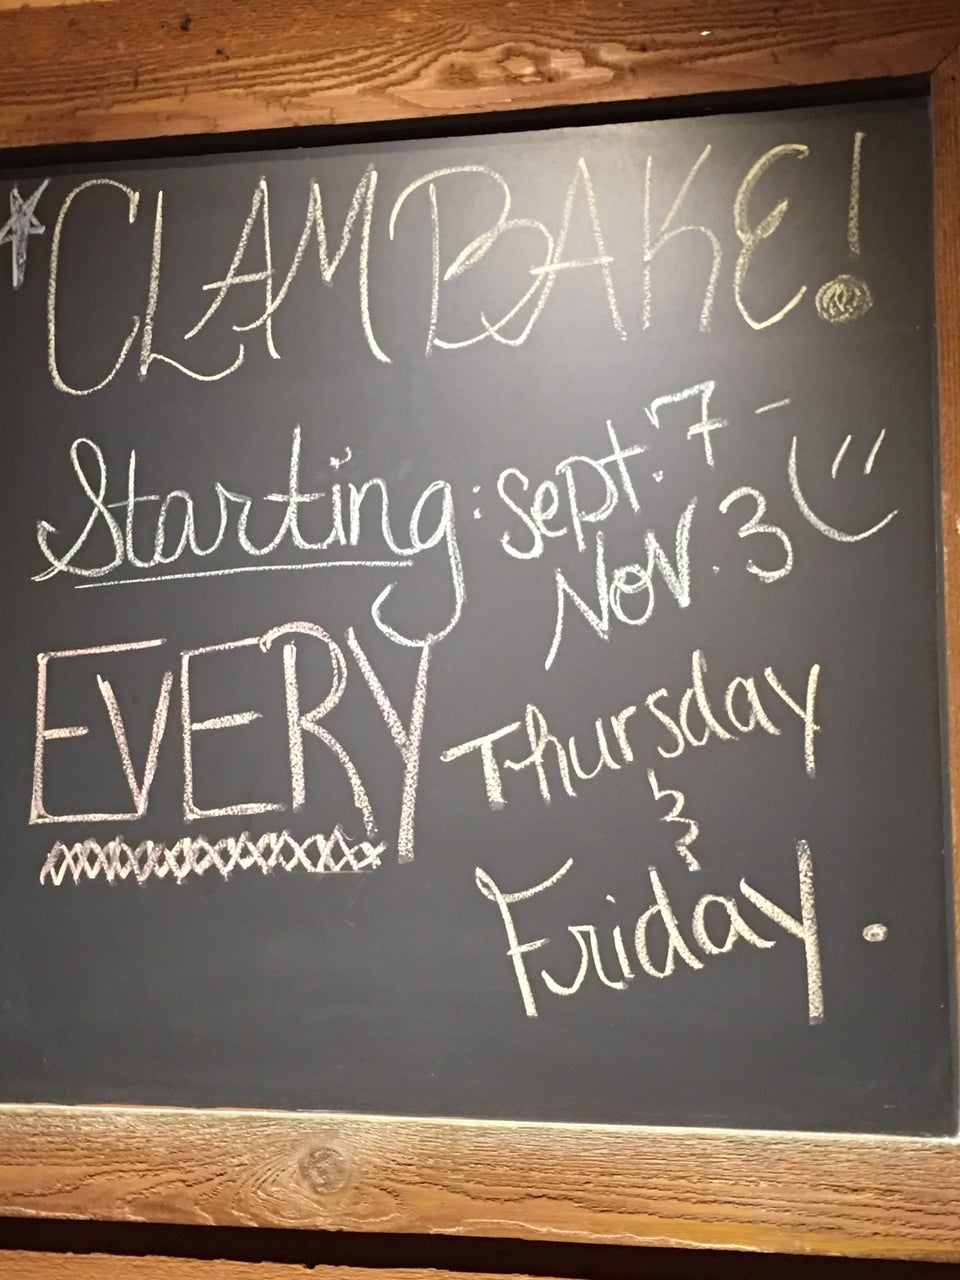 *CLAM BAKE!
Starting: Sept. 7 -
Nov. 3
EVERY Thursday
&
Friday.